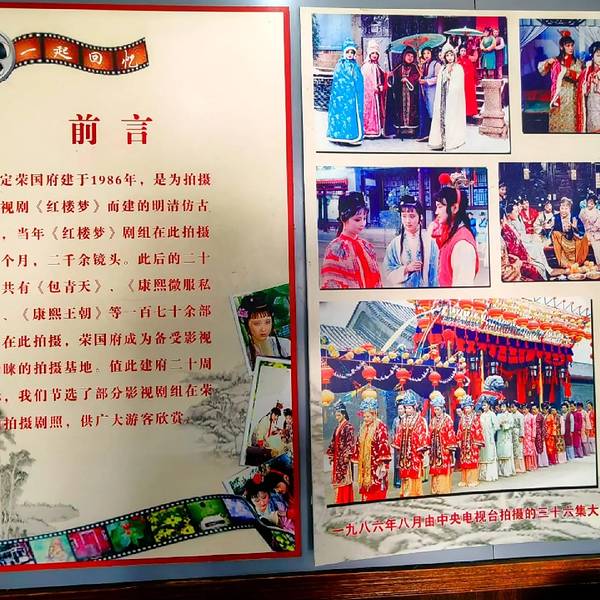 一起回忆
前言
定荣国府建于1986年，是为拍摄
视剧《红楼梦》而建的明清仿古
，当年《红楼梦》剧组在此拍摄
个月，二千余镜头。此后的二十
共有《包青天》、《康熙微服私
、《康熙王朝》等一百七十余部
在此拍摄，荣国府成为备受影视
睐的拍摄基地。值此建府二十周
，我们节选了部分影视剧组在荣
拍摄剧照，供广大游客欣赏
一九八六年八月由中央电视台拍摄的三十六集大